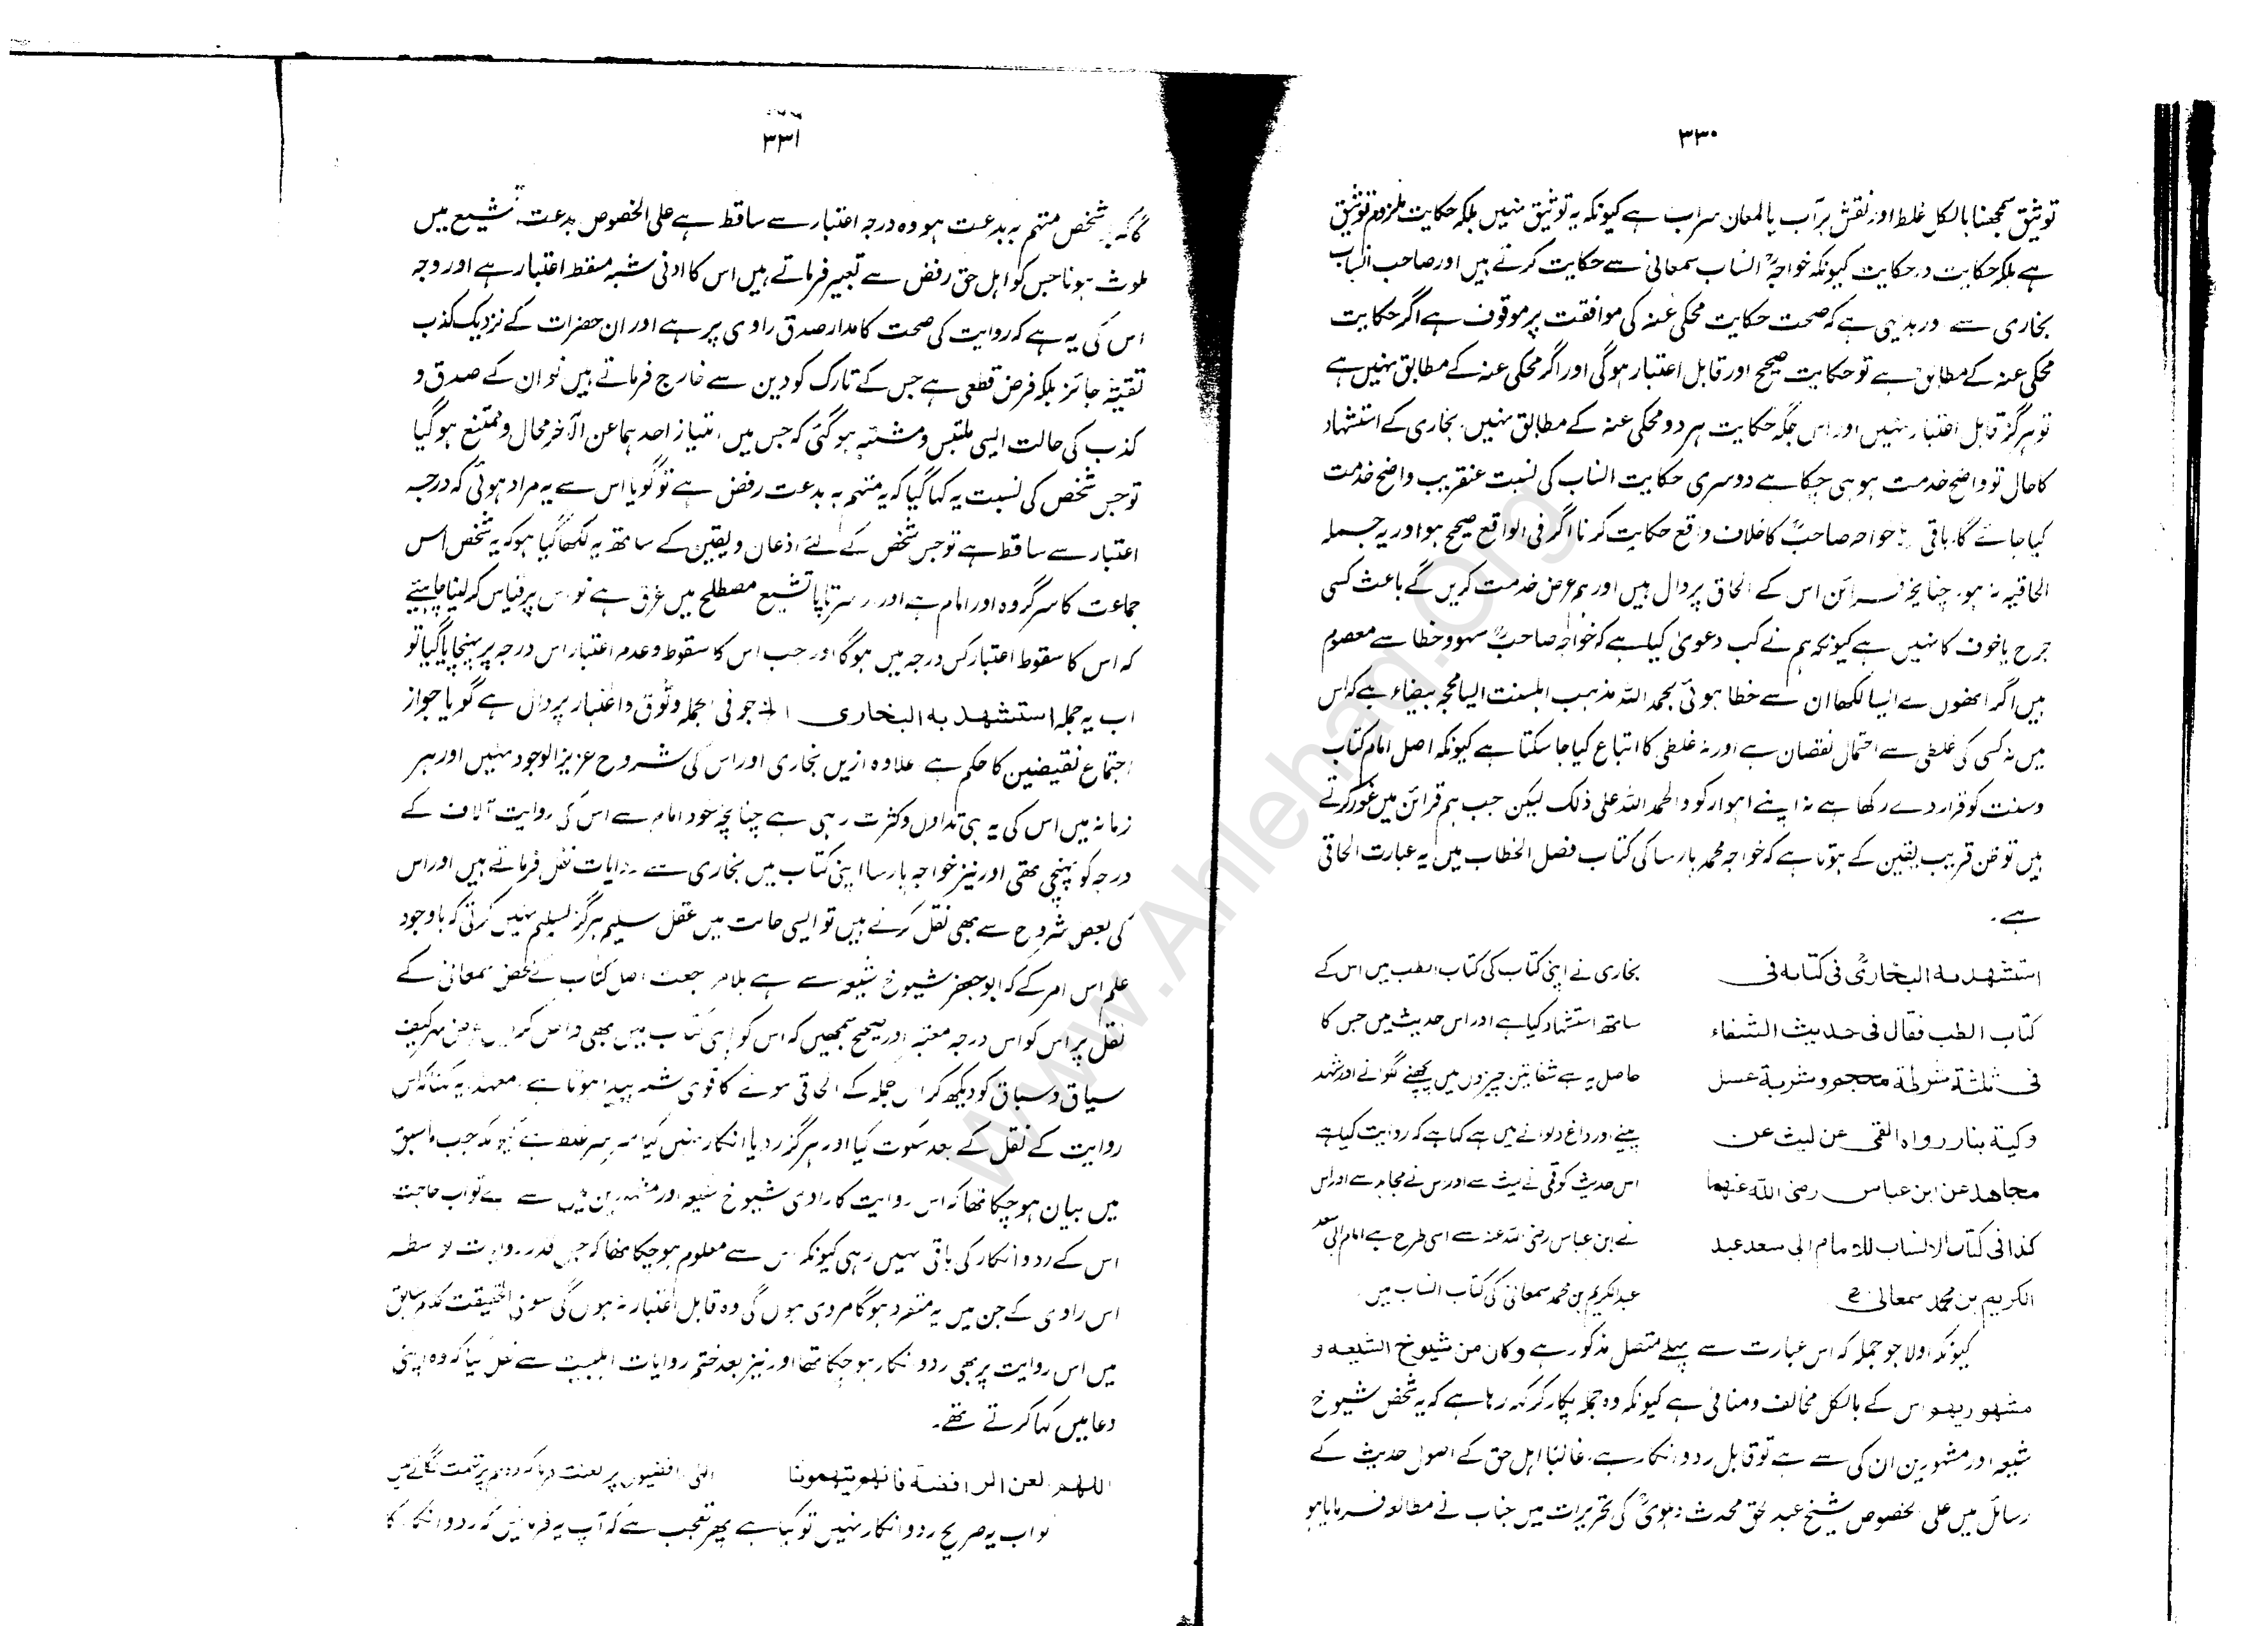 ۳۳۰
توثیق سمجھنا بالکل غلط اور نقش بر آب یا لمعان سراب ہے کیونکہ یہ توثیق نہیں بلکہ حکایت ملزوم توثیق
ہے بلکہ حکایت در حکایت کیونکہ خواجہؒ انساب سمعانی سے حکایت کرتے ہیں اور صاحب انساب
بخاری سے در بدیہی ہے کہ صحت حکایت محکی عنہ کی موافقت پر موقوف ہے اگر حکایت
محکی عنہ کے مطابق ہے تو حکایت صحیح اور قابل اعتبار ہوگی اور اگر محکی عنہ کے مطابق نہیں ہے
تو ہرگز قابل اعتبار نہیں اور اس جگہ حکایت ہر دو محکی عنہ کے مطابق نہیں بخاری کے استشہاد
کا حال تو واضح خدمت ہو ہی چکا ہے دوسری حکایت انساب کی نسبت عنقریب واضح خدمت
کیا جائے گا۔ باقی رہا خواجہ صاحبؒ کا خلاف واقع حکایت کرنا اگر فی الواقع صحیح ہو اور یہ جملہ
الحاقیہ نہ ہو۔ چنانچہ قرائن اس کے الحاق پر دال ہیں اور ہم عرض خدمت کریں گے باعث کسی
جرح یا خوف کا نہیں ہے کیونکہ ہم نے کب دعویٰ کیا ہے کہ خواجہ صاحبؒ سہو و خطا سے معصوم
ہیں اگر انھوں نے ایسا لکھا ان سے خطا ہوئی بحمد اللہ مذہب اہلسنت ایسا محجہ بیضاء ہے کہ اس
میں نہ کسی کی غلطی سے احتمال نقصان ہے اور نہ غلطی کا اتباع کیا جا سکتا ہے کیونکہ اصل امام کتاب
و سنت کو قرار دے رکھا ہے نہ اپنے اہواء کو والحمد للہ علی ذلک لیکن جب ہم قرائن میں غور کرتے
ہیں تو ظن قریب یقین کے ہوتا ہے کہ خواجہ محمد پارسا کی کتاب فصل الخطاب میں یہ عبارت الحاقی
ہے۔
استشهد به البخاریؒ فی کتابه فی بخاری نے اپنی کتاب کی کتاب الطب میں اس کے
کتاب الطب فقال فی حدیث الشفاء ساتھ استشہاد کیا ہے اور اس حدیث میں جس کا
فی ثلثة شرطة محجم و شربة عسل حاصل یہ ہے شفا تین چیزوں میں پچھنے لگوانے اور شہد
وکیة بنار رواه القمی عن لیث عن پینے اور داغ دلوانے میں ہے کہا ہے کہ روایت کیا ہے
مجاهد عن ابن عباس رضی الله عنهما اس حدیث کو قمی نے لیث سے اور اس نے مجاہد سے اور اس
کذا فی کتاب الانساب للامام ابی سعد عبد نے ابن عباس رضی اللہ عنہ سے اسی طرح ہے امام ابی سعد
الکریم بن محمد سمعانی عبد الکریم بن محمد سمعانی کی کتاب انساب میں۔
کیونکہ اولا جو جملہ کہ اس عبارت سے پہلے متصل مذکور ہے وکان من شیوخ الشیعه و
مشهوریهم اس کے بالکل مخالف و منافی ہے کیونکہ وہ جملہ پکار کر کہہ رہا ہے کہ یہ شخص شیوخ
شیعہ اور مشہورین ان کی سے ہے تو قابل رد و انکار ہے۔ غالبا اہل حق کے اصول حدیث کے
رسائل میں علی الخصوص شیخ عبد الحق محدث دہلویؒ کی تحریرات میں جناب نے مطالعہ فرمایا ہو
۳۳۱
گا کہ جو شخص متہم بہ بدعت ہو وہ درجہ اعتبار سے ساقط ہے علی الخصوص بدعت تشیع میں
ملوث ہونا جس کو اہل حق رفض سے تعبیر فرماتے ہیں اس کا ادنی شبہ مسقط اعتبار ہے اور وجہ
اس کی یہ ہے کہ روایت کی صحت کا مدار صدق راوی پر ہے اور ان حضرات کے نزدیک کذب
تقیۃ جائز بلکہ فرض قطعی ہے جس کے تارک کو دین سے خارج فرماتے ہیں تو ان کے صدق و
کذب کی حالت ایسی ملتبس و مشتبہ ہو گئی کہ جس میں امتیاز احدہما عن الآخر محال و ممتنع ہو گیا
تو جس شخص کی نسبت یہ کہا گیا کہ یہ متہم بہ بدعت رفض ہے تو گویا اس سے یہ مراد ہوئی کہ درجہ
اعتبار سے ساقط ہے تو جس شخص کے لئے اذعان و یقین کے ساتھ یہ لکھا گیا ہو کہ یہ شخص اس
جماعت کا سرگروہ اور امام ہے اور سرتاپا تشیع مصطلح میں غرق ہے تو اس پر قیاس کر لینا چاہیئے
کہ اس کا سقوط اعتبار کس درجہ میں ہوگا اور جب اس کا سقوط و عدم اعتبار اس درجہ پر پہنچایا گیا تو
اب یہ جملہ استشهد به البخاری الخ جو فی الجملہ وثوق و اعتبار پر دال ہے گویا جواز
اجتماع نقیضین کا حکم ہے علاوہ ازیں بخاری اور اس کی شروح عزیز الوجود نہیں اور ہر
زمانہ میں اس کی یہ ہی تداول و کثرت رہی ہے چنانچہ خود امام سے اس کی روایت آلاف کے
درجہ کو پہنچی تھی اور نیز خواجہ پارسا اپنی کتاب میں بخاری سے روایات نقل فرماتے ہیں اور اس
کی بعض شروح سے بھی نقل کرتے ہیں تو ایسی حالت میں عقل سلیم ہرگز تسلیم نہیں کرتی کہ باوجود
علم اس امر کے کہ ابو جعفر شیوخ شیعہ سے ہے بلا مراجعت اصل کتاب کے محض سمعانی کے
نقل پر اس کو اس درجہ معتبر اور صحیح سمجھیں کہ اس کو اپنی کتاب میں بھی داخل کر لیں
سیاق و سباق کو دیکھ کر اس جملہ کے الحاقی ہونے کا قوی شبہ پیدا ہوتا ہے۔ معہذا یہ کہنا کہ اس
روایت کے نقل کے بعد سکوت کیا اور ہرگز رد یا انکار نہیں کیا سراسر غلط ہے کیونکہ جب ماسبق
میں بیان ہو چکا تھا کہ اس روایت کا راوی شیوخ شیعہ اور مشہورین میں سے ہے تو اب حاجت
اس کے رد و انکار کی باقی نہیں رہی کیونکہ اس سے معلوم ہو چکا تھا کہ جس قدر روایت
اس راوی کے جن میں یہ متفرد ہوگا مروی ہوں گی وہ قابل اعتبار نہ ہوں گی سو فی الحقیقت کلام سابق
میں اس روایت پر بھی رد و انکار ہو چکا تھا اور نیز بعد ختم روایات اہلبیت سے نقل کیا کہ وہ اپنی
دعا میں کہا کرتے تھے۔
اللهم لعن الرافضة فانهم یتهموننا الٰہی رافضیوں پر لعنت فرما کہ وہ ہم پر تہمت لگاتے ہیں
تو اب یہ صریح رد و انکار نہیں تو کیا ہے پھر تعجب ہے کہ آپ یہ فرمائیں کہ رد و انکار کا
www.Ahlehaq.Org